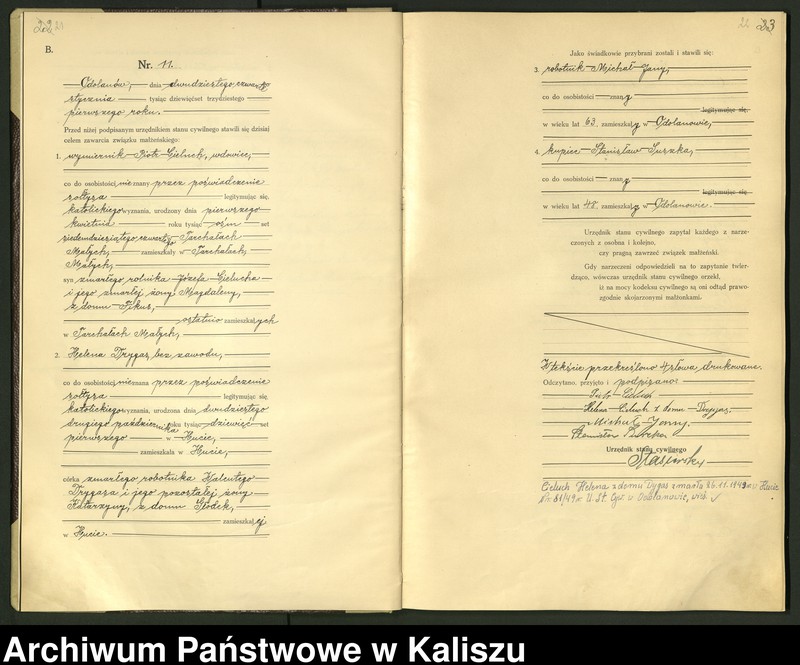 B.
Nr. 11.
Odolanów, dnia dwudziestego czwartego
stycznia tysiąc dziewięćset trzydziestego
pierwszego roku.
Przed niżej podpisanym urzędnikiem stanu cywilnego stawili się dzisiaj
celem zawarcia związku małżeńskiego:
1. wymiernik Piotr Cieluch, wdowiec,
co do osobistości nieznany przez poświadczenie
sołtysa legitymując się,
katolickiego wyznania, urodzony dnia pierwszego
kwietnia roku tysiąc ośm set
siedemdziesiątego czwartego Tarchałach
Małych, zamieszkały w Tarchałach
Małych,
syn zmarłego rolnika Józefa Cielucha
i jego zmarłej żony Magdaleny,
z domu Pikus,
ostatnio zamieszkałych
w Tarchałach Małych,
2. Helena Drygas, bez zawodu,
co do osobistości nieznana przez poświadczenie
sołtysa legitymując się,
katolickiego wyznania, urodzona dnia dwudziestego
drugiego października roku tysiąc dziewięć set
pierwszego w Hucie,
zamieszkała w Hucie,
córka zmarłego robotnika Walentego
Drygasa i jego pozostałej żony
Katarzyny, z domu
zamieszkałej
w Hucie.
23
Jako świadkowie przybrani zostali i stawili się:
3. robotnik Michał Jany,
co do osobistości znany
legitymując się,
w wieku lat 63, zamieszkały w Odolanowie,
4. kupiec Stanisław
co do osobistości znany
legitymując się,
w wieku lat 48, zamieszkały w Odolanowie.
Urzędnik stanu cywilnego zapytał każdego z narze-
czonych z osobna i kolejno,
czy pragną zawrzeć związek małżeński.
Gdy narzeczeni odpowiedzieli na to zapytanie twier-
dząco, wówczas urzędnik stanu cywilnego orzekł,
iż na mocy kodeksu cywilnego są oni odtąd prawo-
zgodnie skojarzonymi małżonkami.
W tekście przekreślono 4 słowa drukowane.
Odczytano, przyjęto i podpisano:
Cieluch
Helena Cieluch z domu Drygas.
Michał
Stanisław
Urzędnik stanu cywilnego
Cieluch Helena z domu Dygas zmarła 26.11.1949 w Hucie
Nr 81/49 U. St. Cyw. w Odolanowie,
Archiwum Państwowe w Kaliszu